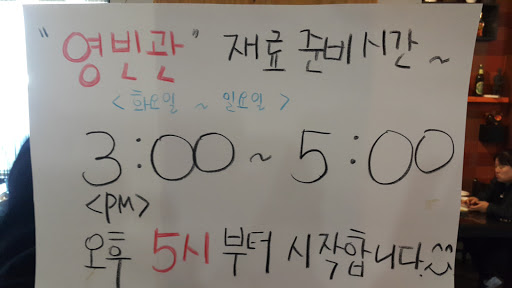 "영빈관" 재료 준비시간~
<화요일 ~ 일요일>
3:00 ~ 5:00
<PM>
오후 5시부터 시작합니다.^^